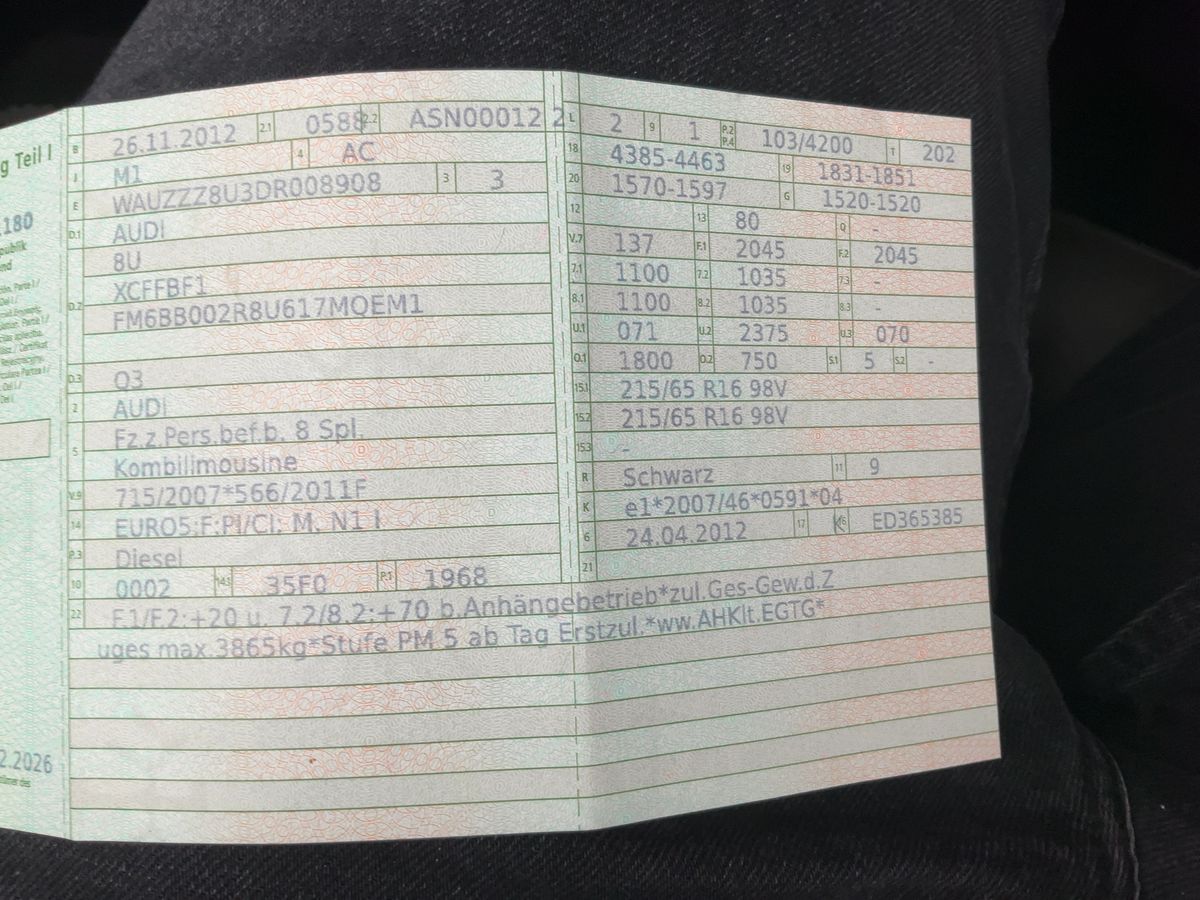 g Teil I
.180
publik
nd
2.2026
B 26.11.2012 2.1 0588 2.2 ASN00012 2
J M1 4 AC
E WAUZZZ8U3DR008908 3 3
D.1 AUDI
8U
D.2 XCFFBF1
FM6BB002R8U617MQEM1
D.3 Q3
2 AUDI
Fz.z.Pers.bef.b. 8 Spl.
5 Kombilimousine
V.9 715/2007*566/2011F
14 EURO5;F;PI/CI; M, N1 I
P.3 Diesel
10 0002 14.1 35F0 P.1 1968
L 2 9 1 P.2 P.4 103/4200 T 202
18 4385-4463 19 1831-1851
20 1570-1597 G 1520-1520
12 13 80 Q -
V.7 137 F.1 2045 F.2 2045
7.1 1100 7.2 1035 7.3 -
8.1 1100 8.2 1035 8.3 -
U.1 071 U.2 2375 U.3 070
O.1 1800 O.2 750 S.1 5 S.2 -
15.1 215/65 R16 98V
15.2 215/65 R16 98V
15.3 -
R Schwarz 11 9
K e1*2007/46*0591*04
6 24.04.2012 17 K 16 ED365385
21
22 F.1/F.2:+20 u. 7.2/8.2:+70 b.Anhängebetrieb*zul.Ges-Gew.d.Z
uges max.3865kg*Stufe PM 5 ab Tag Erstzul.*ww.AHKlt.EGTG*